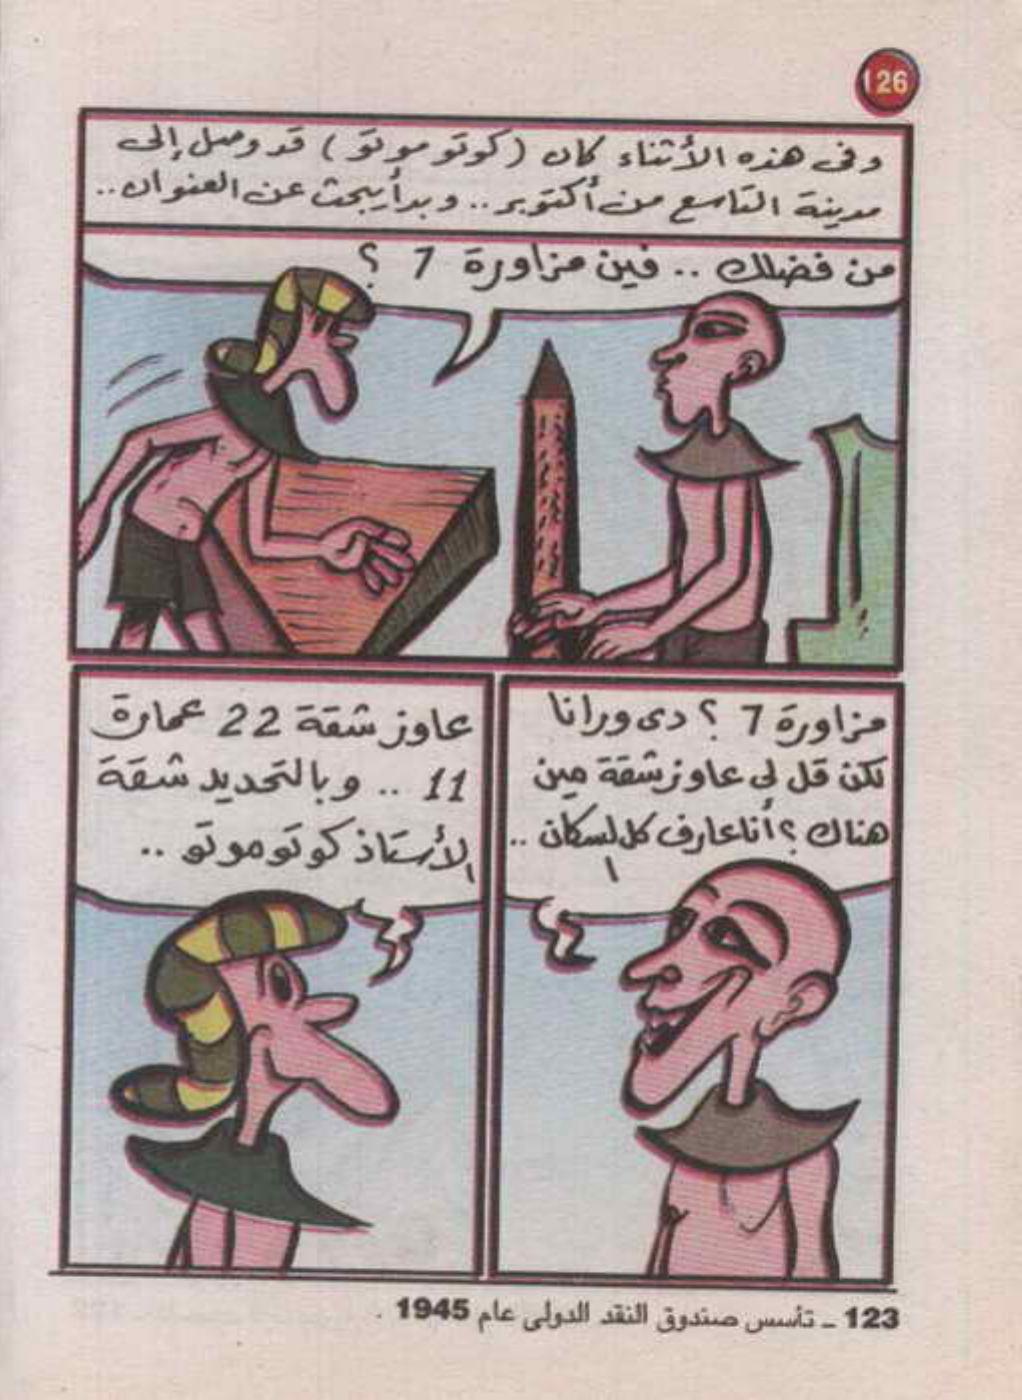 126
وفى هذه الأثناء كان (كوتو موتو) قد وصل إلى
مدينة التاسع من أكتوبر.. وبدأ يبحث عن العنوان..
من فضلك .. فين مزاورة 7 ؟
مزاورة 7 ؟ دى ورانا
لكن قل لى عاوز شقة مين
هناك ؟ أنا عارف كل السكان ..
عاوز شقة 22 عمارة
11 .. وبالتحديد شقة
الأستاذ كوتو موتو ..
123 ـ تأسس صندوق النقد الدولى عام 1945 .